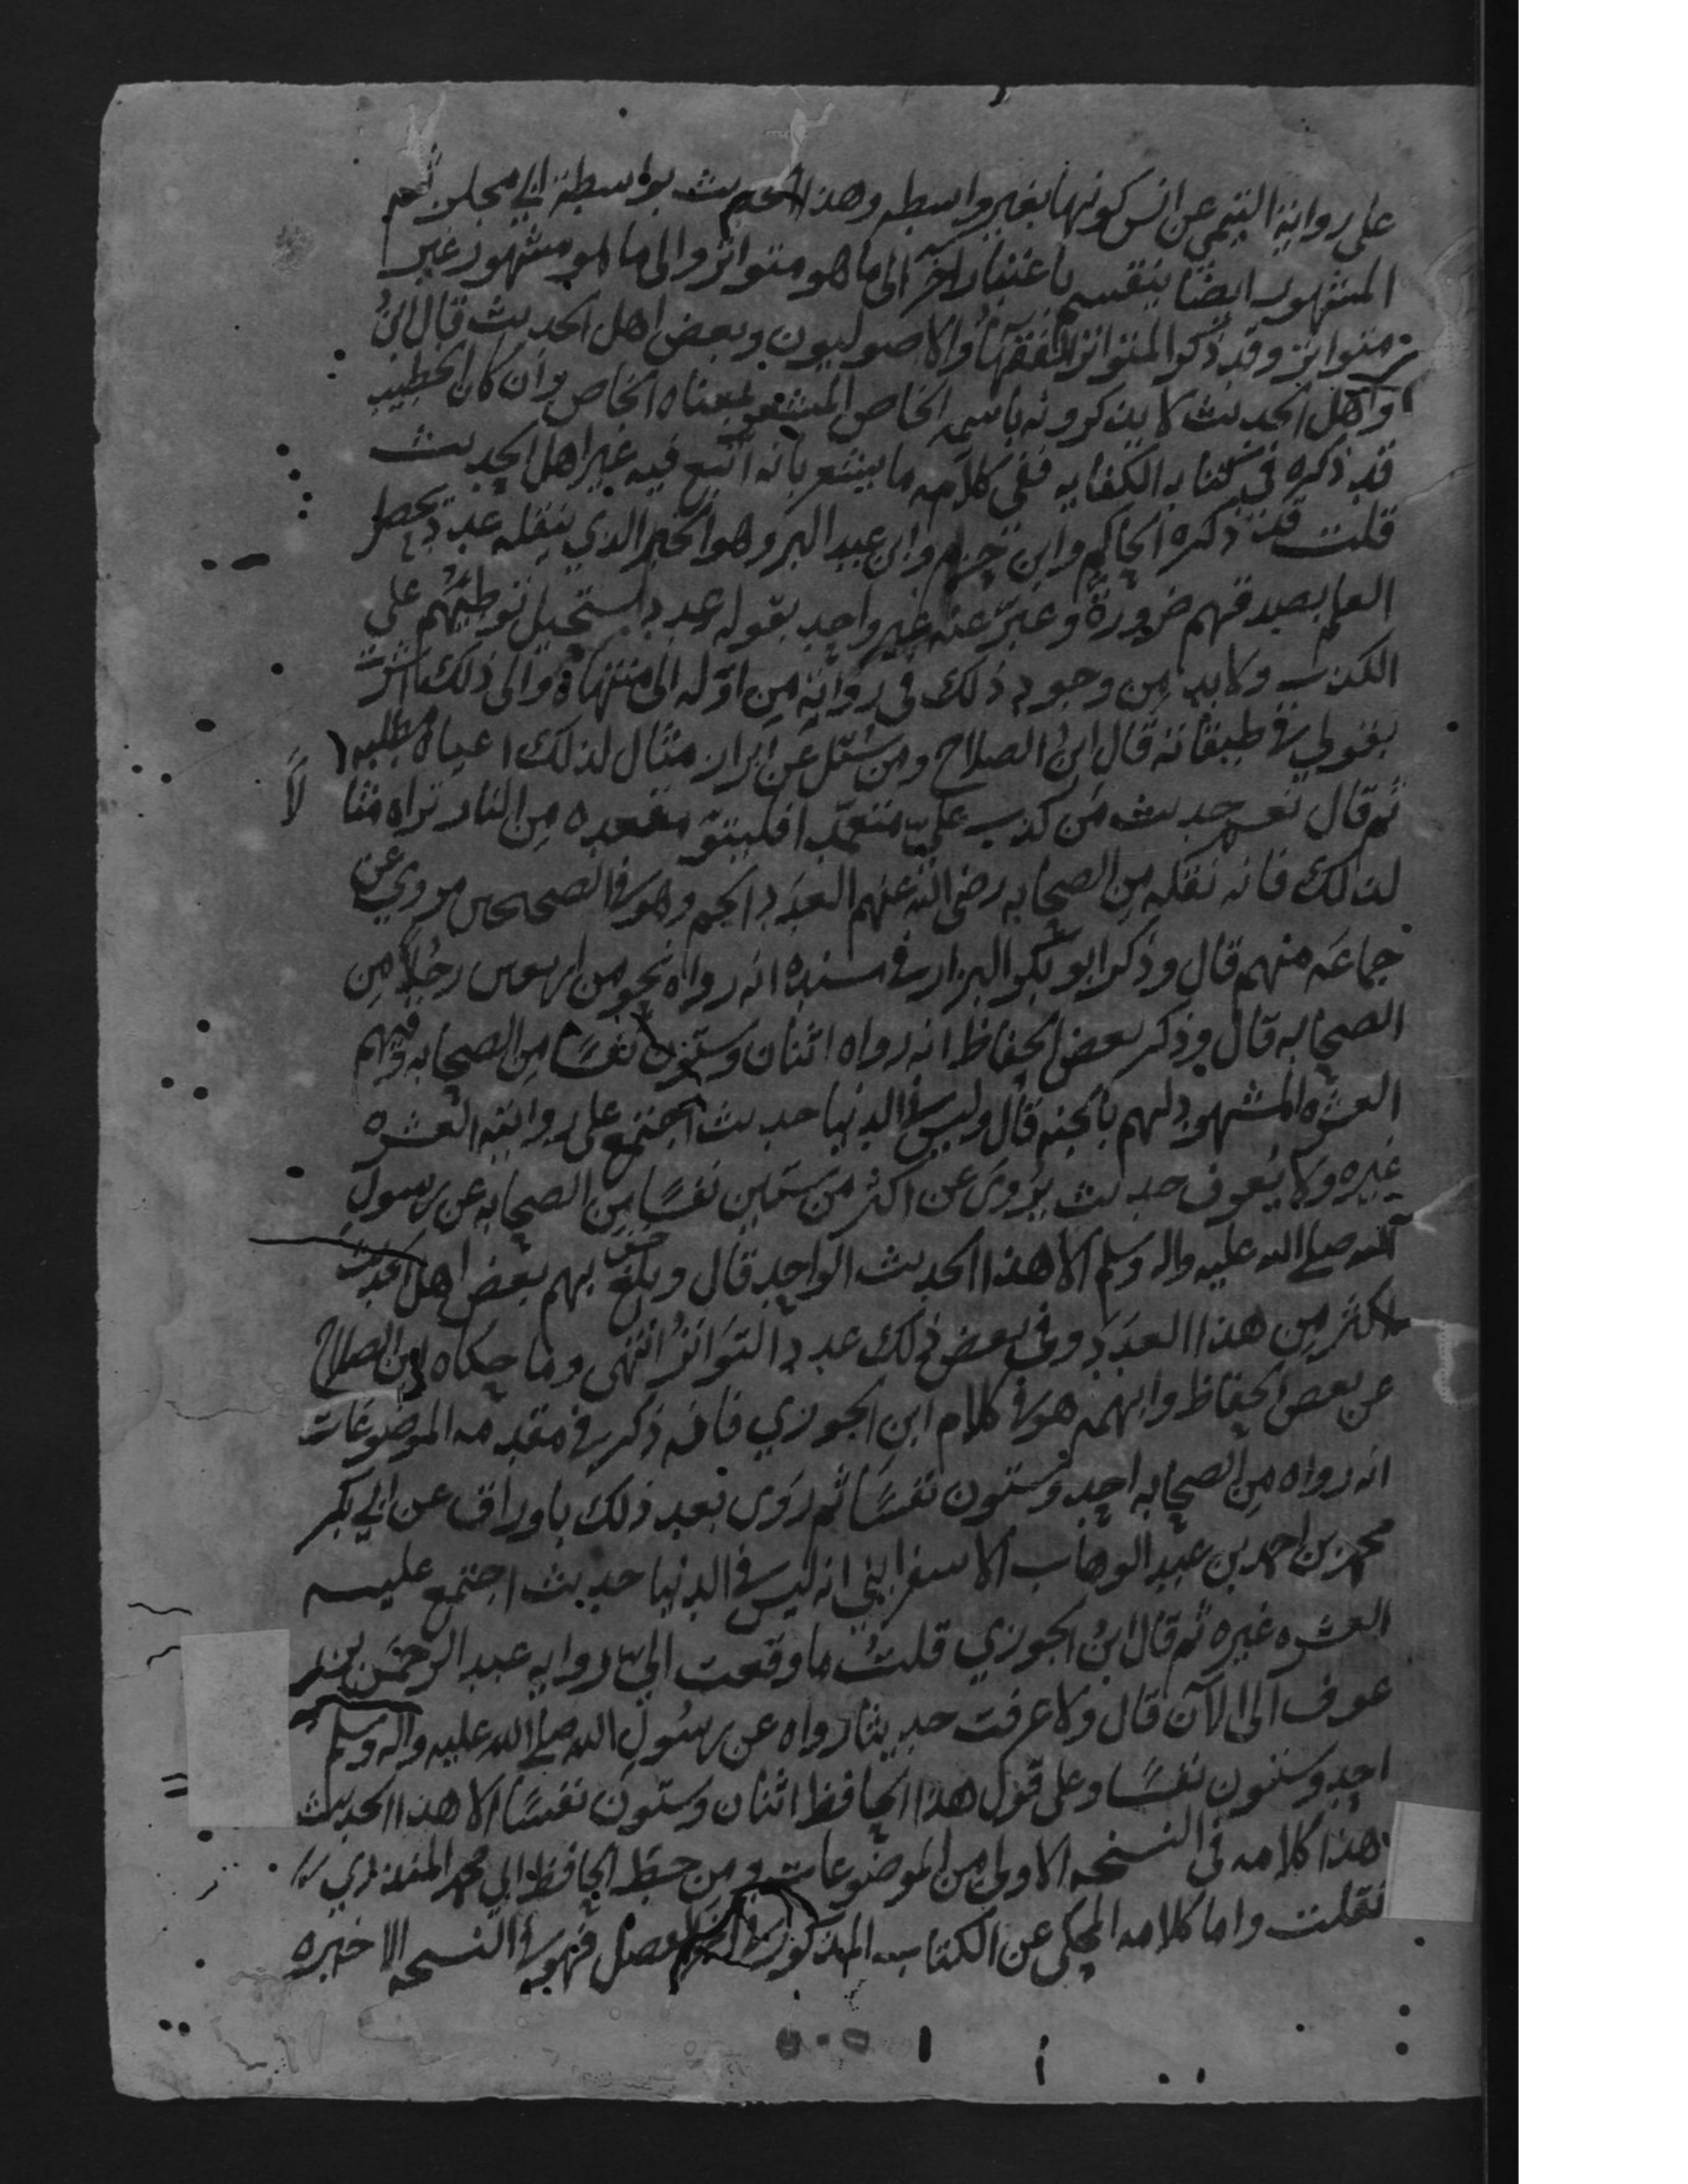 على رواية التيمي عن انس كونها بغير واسطه وهذا الحديث بواسطة ابي مجلز ثم
المشهور ايضًا ينقسم باعتبار اخر الى ما هو متواتر والى ما هو مشهور غير
متواتر وقد ذكر المتواتر الفقهآ والاصوليون وبعض اهل الحديث قال ابنُ
واهل الحديث لا يذكرونه باسمه الخاص المشعر بمعناه الخاص وان كان الخطيب
قد ذكره في كتابه الكفايه ففي كلامه ما يشعر بانه اتبع فيه غير اهل الحديث
قلت قد ذكره الحاكم وابن حزم وابن عبد البر وهو الخبر الذي ينقله عدد يحصل
العلم بصدقهم ضرورةً وعبّر عنه غير واحد بقوله عدد يستحيل تواطئهم على
الكذب ولا بد من وجود ذلك في رواته من اوّله الى منتهاه والى ذلك اشرت
بقولي في طبقاته قال ابن الصلاح ومن سُئل عن ابراز مثال لذلك اعياه تطلبه
ثم قال نعم حديث مَن كذب عليّ متعمّدا فليتبوّ مقعده من النار نراه مثا لاً
لذلك فانه نقله مِن الصحابه رضي الله عنهم العدَد الجم وهو في الصحيحين مروي عن
جماعه منهم قال وذكر ابو بكر البزار في مسنده انه رواه نحو من اربعين رجُلاً مِن
الصحابه قال وذكر بعض الحفاظ انه رواه اثنان وستون نفسًا مِن الصحابه وفيهم
العشره المشهود لهم بالجنه قال وليس في الدنيا حديث اجتمع على روايته العشره
غيره ولا يُعرف حديث يُروى عن اكثر من ستين نفسًا مِن الصحابه عن رسول
الله صلى الله عليه واله وسلم الا هذا الحديث الواحد قال وبلغ بهم بعض اهل الحديث
اكثر مِن هذا العدَد وفي بعض ذلك عدد التوَاترُ انتهى وما حكاه ابن الصلاح
عن بعض الحفاظ وابهمه هو في كلام ابن الجوزي فانه ذكر في مقدمه الموضوعات
انه رواه مِن الصحابه احد وستون نفسًا ثم رَوى بعد ذلك باوراق عن ابي بكر
محمد بن احمد بن عبد الوهاب الاسفرايني انه ليس في الدنيا حديث اجتمع عليه
العشره غيره ثم قال ابنُ الجوزي قلتُ ما وقعت اليّ روايه عبد الرحمن بن
عوف الى الآن قال ولا عرفت حديثا رواه عن رسُول الله صلى الله عليه واله وسلم
احد وستون نفسًا وعلى قول هذا الحافظ اثنان وستون نفسًا الا هذا الحديث
هذا كلامه في النسخه الاولى من الموضوعات ومن خط الحافظ ابي محمد المنذري
نقلت واما كلامه المحكي عن الكتاب المذكور فهو في النسخه الاخيره